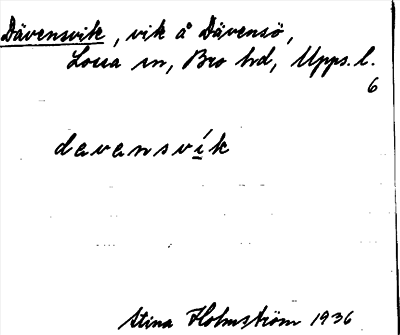 Dävensvik, vik å Dävensö,
Lossa sn, Bro hd, Upps. l.
6
davansvík
Stina Holmström 1936